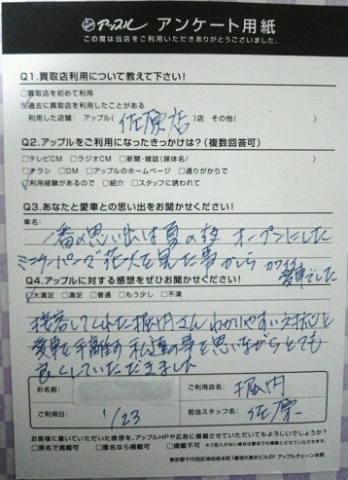 アップル アンケート用紙
この度は当店をご利用いただきありがとうございました。
Q1.買取店利用について教えて下さい!
□買取店を初めて利用
☑過去に買取店を利用したことがある
利用した店舗: アップル( 佐原店 )店 その他( )
Q2.アップルをご利用になったきっかけは?(複数回答可)
□テレビCM □ラジオCM □新聞・雑誌(媒体名/ )
□チラシ □DM □アップルのホームページ □通りがかりで
☑利用経験があるので □紹介 □スタッフに誘われて
Q3.あなたと愛車との思い出をお聞かせください!
車名:
一番の思い出は夏の夜 オープンにした
ミニクーパーで花火を見た事かしら
愛車でした
Q4.アップルに対する感想をぜひお聞かせください!
☑大満足 □満足 □普通 □もう少し □不満
接客してくれた堀内さん わかりやすい
愛車を手離す私達の事を思いながらとても
良くしていただきました
お名前:
ご利用店名: 堀内
ご利用日: 1/23
担当スタッフ名: 佐原
お客様に書いていただいた感想を、アップルHPや広告に掲載させていただいてもよろしいでしょうか?
□実名で掲載可 □匿名なら掲載可 □掲載不可